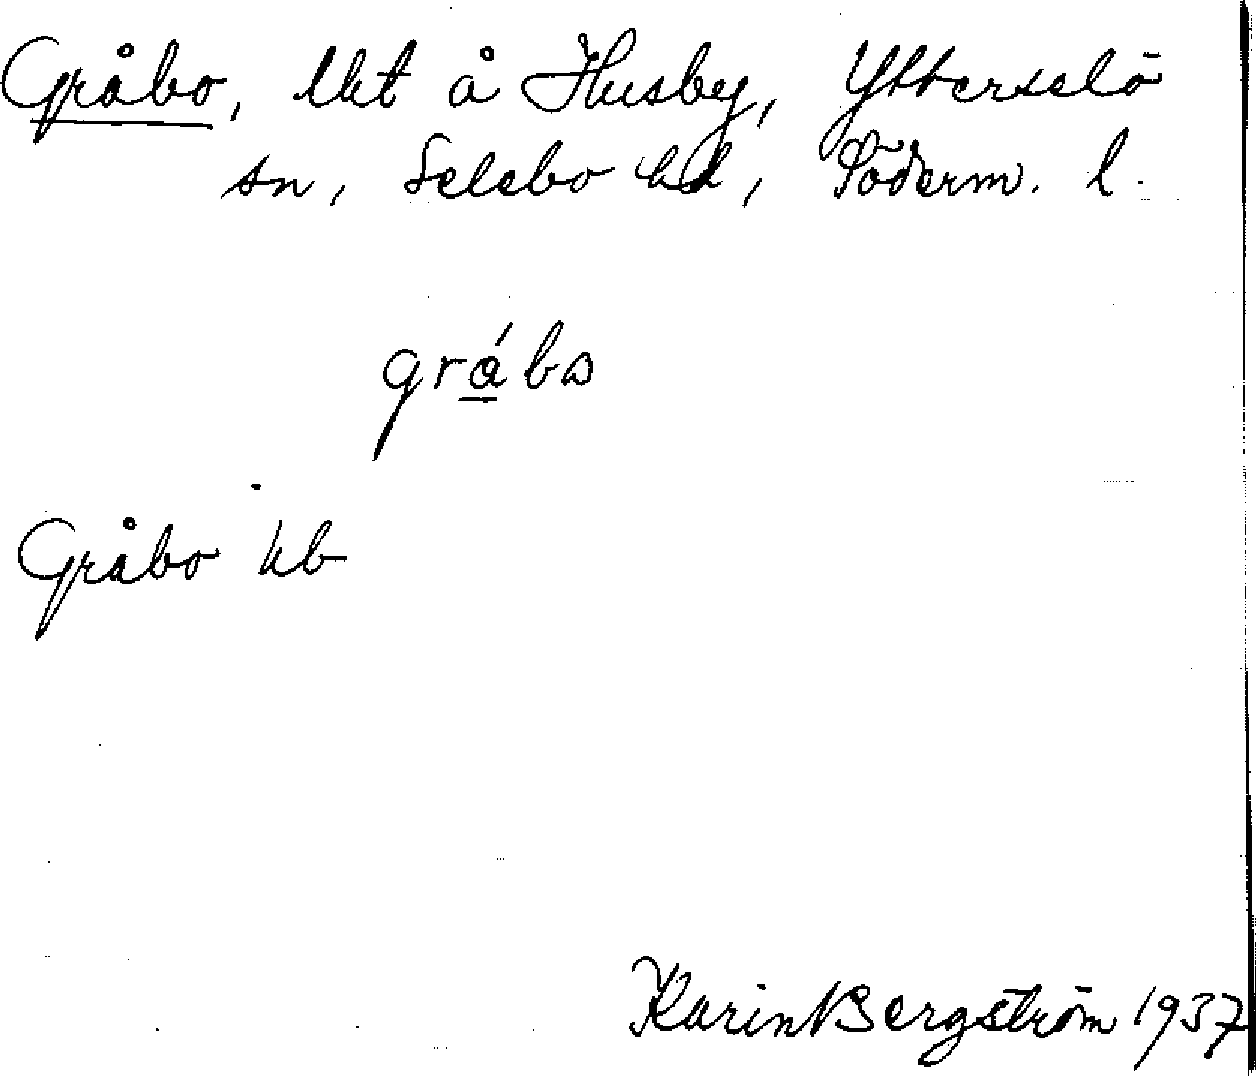 Gråbo, lht å Husby, Ytterselö
sn, Selebo hd, Söderm. l.
grábω
Gråbo kb
Karin Bergström 1937